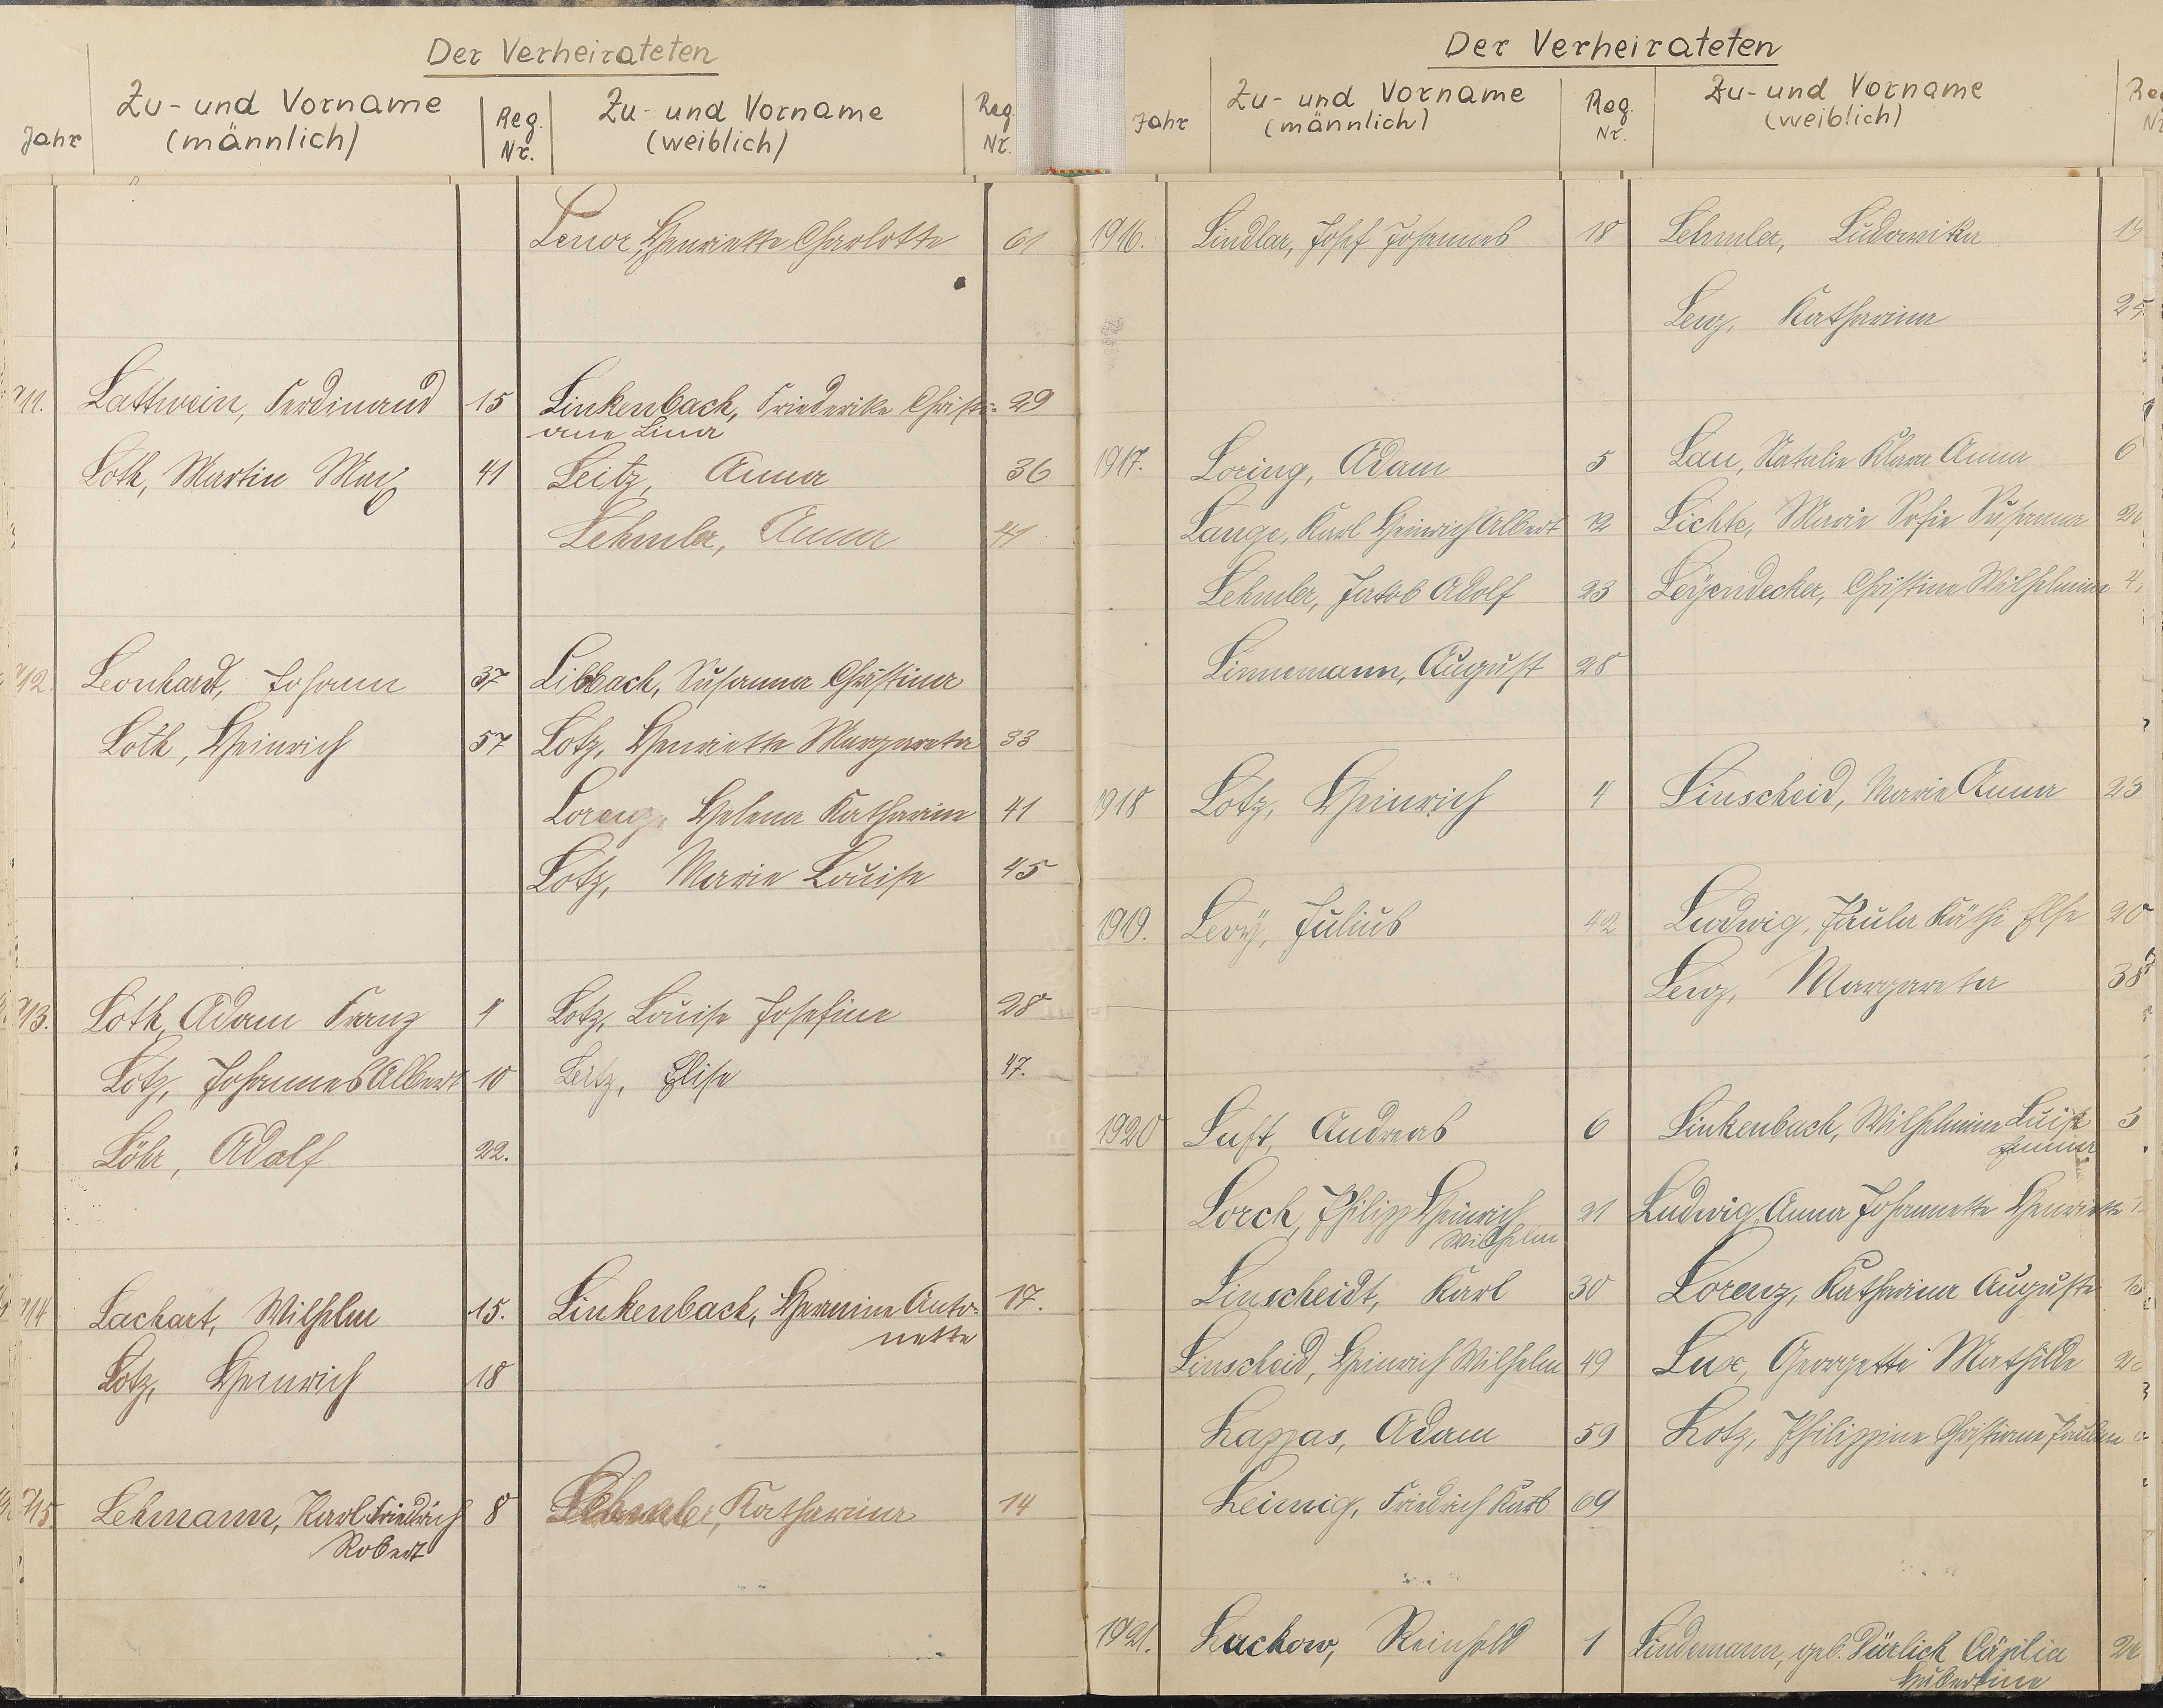 Der Verheirateten
Jahr Zu- und Vorname (männlich) Reg. Nr. Zu- und Vorname (weiblich) Reg. Nr.
Lenor, Henriette Charlotte 61
11. Lattwein, Ferdinand 15 Linkenbach, Friederike Christi= 29
ane Lina
Loth, Martin Max 41 Leitz, Anna 36
Lehmler, Anna 41
12. Leonhardt, Johann 37 Libbach, Susanna Christina
Loth, Heinrich 57 Lotz, Henriette Margareta 33
Lorenz, Helena Katharine 41
Lotz, Marie Louise 45
13. Loth, Adam Franz 4 Lotz, Louise Josefine 28
Lotz, Johannes Albert 10 Leitz, Elise 47.
Löhr, Adolf 22.
14 Lachart, Wilhelm 15. Linkenbach, Hermine Anto= 17.
nette
Lotz, Heinrich 18
15. Lehmann, Karl Friedrich 8 Lehmler, Katharina 14
Robert
Der Verheirateten
Jahr Zu- und Vorname (männlich) Reg. Nr. Zu- und Vorname (weiblich)
1916. Lindlar, Josef Johannes 18 Lehmler, Ludowika
Lenz, Katharina 25.
1917. Loring, Adam 5 Lau, Natalie Klara Anna 6
Lange, Karl Heinrich Albert 12 Lichte, Marie Sofie Susanna
Lehmler, Jakob Adolf 23 Leyendecker, Christine Wilhelmine
Linnemann, August 28
1918 Lotz, Heinrich 4 Linscheid, Marie Anna 23
1919. Levy, Julius 42 Ludwig, Paula Käthi Else 20
Lenz, Margareta 38
1920 Luft, Andreas 6 Linkenbach, Wilhelmine Luise 3
Emma
Lorch, Philipp Heinrich 21 Ludwig, Anna Johannette Henriette
Wilhelm
Linscheidt, Karl 30 Lorenz, Katharina Auguste
Linscheid, Heinrich Wilhelm 49 Lux, Georgette Mathilde
Lappas, Adam 59 Lotz, Philippine Christiane Pauline
Leimig, Friedrich Karl 69
1921. Luckow, Reinhold 1 Lindemann, geb. Dürlich Cäzilia
Hubertine